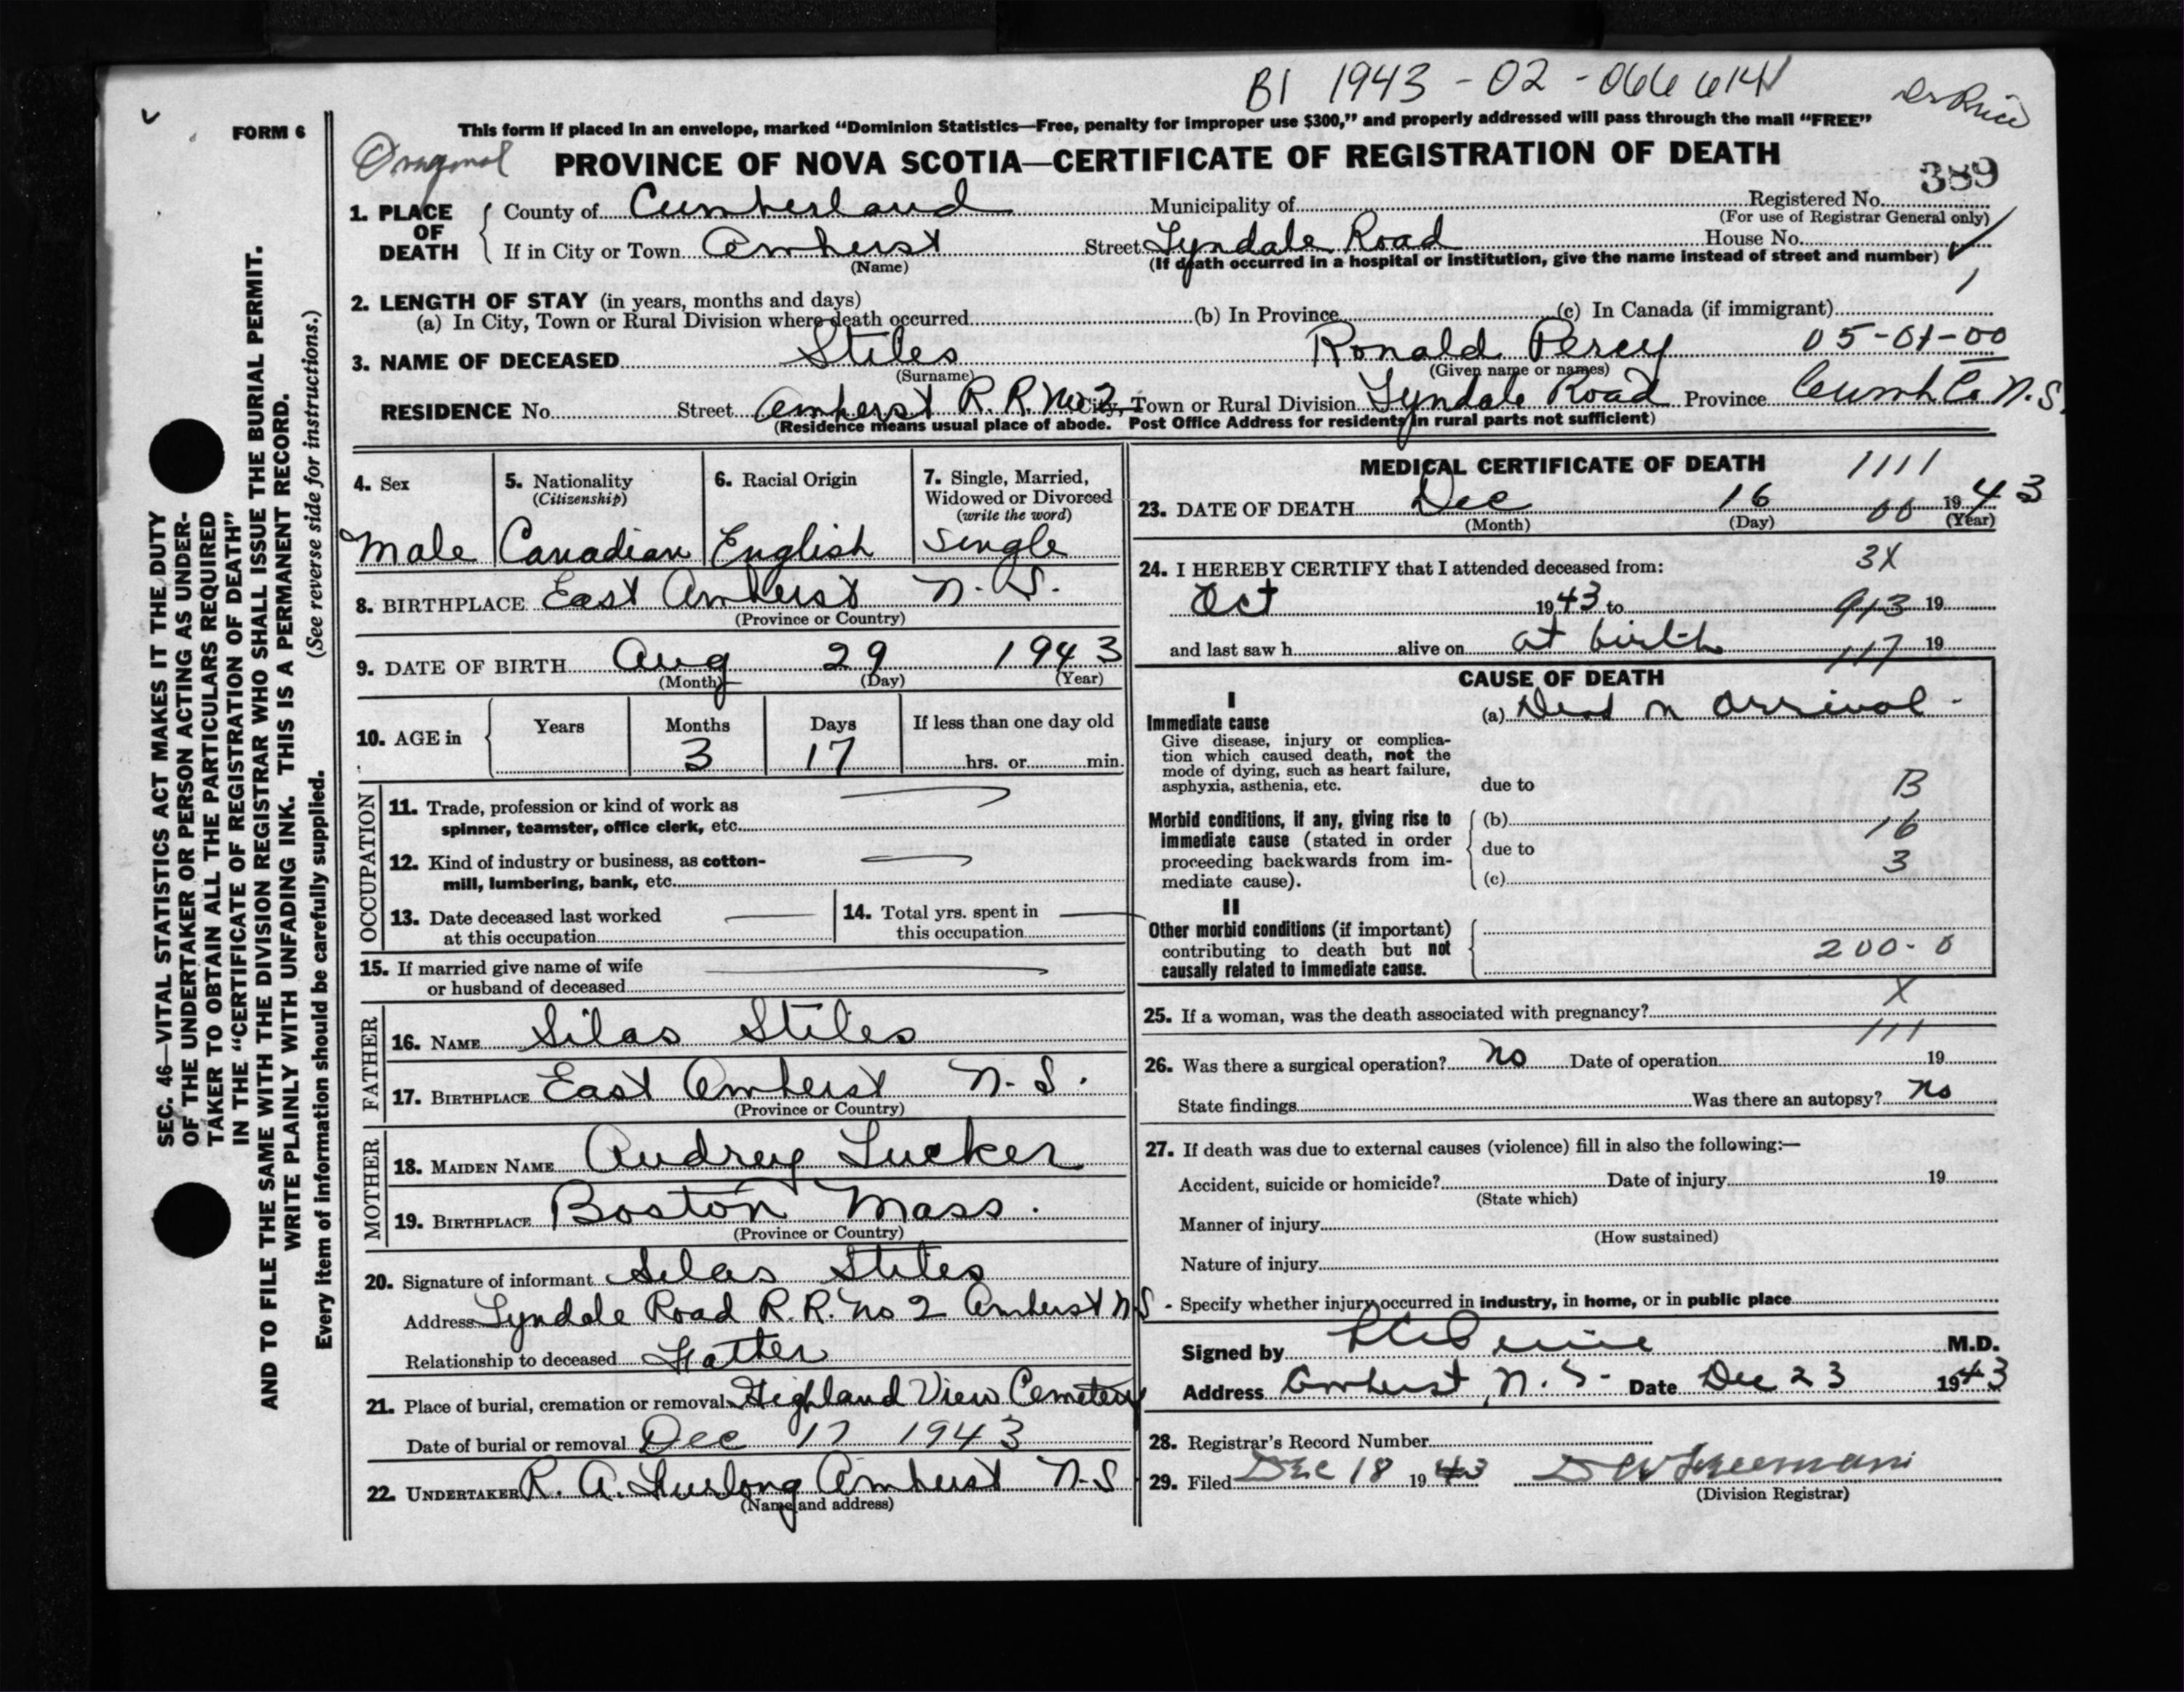 B1 1943-02-066614
Dr Price
FORM 6
This form if placed in an envelope, marked “Dominion Statistics—Free, penalty for improper use $300,” and properly addressed will pass through the mail “FREE”
Original
PROVINCE OF NOVA SCOTIA—CERTIFICATE OF REGISTRATION OF DEATH
389
1. PLACE OF DEATH
County of Cumberland Municipality of Registered No.
(For use of Registrar General only)
If in City or Town Amherst Street Lyndale Road House No.
(Name) (If death occurred in a hospital or institution, give the name instead of street and number)
2. LENGTH OF STAY (in years, months and days)
(a) In City, Town or Rural Division where death occurred (b) In Province (c) In Canada (if immigrant)
3. NAME OF DECEASED Stiles Ronald Percy 05-01-00
(Surname) (Given name or names)
RESIDENCE No. Street Amherst R.R. No 2 City, Town or Rural Division Lyndale Road Province Cumb Co N.S.
(Residence means usual place of abode. Post Office Address for residents in rural parts not sufficient)
4. Sex
Male
5. Nationality
(Citizenship)
Canadian
6. Racial Origin
English
7. Single, Married,
Widowed or Divorced
(write the word)
Single
8. BIRTHPLACE East Amherst N.S.
(Province or Country)
9. DATE OF BIRTH Aug 29 1943
(Month) (Day) (Year)
10. AGE in Years Months Days If less than one day old
3 17 hrs. or min.
OCCUPATION
11. Trade, profession or kind of work as
spinner, teamster, office clerk, etc.
12. Kind of industry or business, as cotton-
mill, lumbering, bank, etc.
13. Date deceased last worked
at this occupation
14. Total yrs. spent in
this occupation
15. If married give name of wife
or husband of deceased
FATHER
16. NAME Silas Stiles
17. BIRTHPLACE East Amherst N.S.
(Province or Country)
MOTHER
18. MAIDEN NAME Audrey Tucker
19. BIRTHPLACE Boston Mass.
(Province or Country)
20. Signature of informant Silas Stiles
Address Lyndale Road R.R. No 2 Amherst N.S
Relationship to deceased Father
21. Place of burial, cremation or removal Highland View Cemetery
Date of burial or removal Dec 17 1943
22. UNDERTAKER R. A. Furlong Amherst N.S
(Name and address)
MEDICAL CERTIFICATE OF DEATH 1111
23. DATE OF DEATH Dec 16 00 1943
(Month) (Day) (Year)
24. I HEREBY CERTIFY that I attended deceased from: 3X
Oct 1943 to 913 19
and last saw h alive on at birth 117 19
CAUSE OF DEATH
I
Immediate cause
Give disease, injury or complica-
tion which caused death, not the
mode of dying, such as heart failure,
asphyxia, asthenia, etc.
(a) Dead on arrival -
due to B
Morbid conditions, if any, giving rise to
immediate cause (stated in order
proceeding backwards from im-
mediate cause).
(b) 16
due to
3
(c)
II
Other morbid conditions (if important)
contributing to death but not
causally related to immediate cause.
200-0
X
25. If a woman, was the death associated with pregnancy?
111
26. Was there a surgical operation? No Date of operation 19
State findings Was there an autopsy? No
27. If death was due to external causes (violence) fill in also the following:—
Accident, suicide or homicide? Date of injury 19
(State which)
Manner of injury
(How sustained)
Nature of injury
Specify whether injury occurred in industry, in home, or in public place
Signed by M.D.
Address Amherst, N.S. Date Dec 23 1943
28. Registrar's Record Number
29. Filed Dec 18 1943 D W Freeman
(Division Registrar)
SEC. 46—VITAL STATISTICS ACT MAKES IT THE DUTY
OF THE UNDERTAKER OR PERSON ACTING AS UNDER-
TAKER TO OBTAIN ALL THE PARTICULARS REQUIRED
IN THE “CERTIFICATE OF REGISTRATION OF DEATH”
AND TO FILE THE SAME WITH THE DIVISION REGISTRAR WHO SHALL ISSUE THE BURIAL PERMIT.
WRITE PLAINLY WITH UNFADING INK. THIS IS A PERMANENT RECORD.
Every item of information should be carefully supplied. (See reverse side for instructions.)